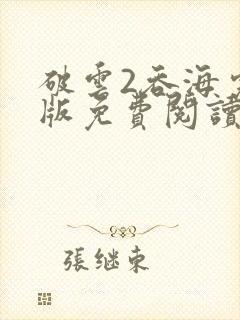 破雲2吞海
版免費閱讀
張继東